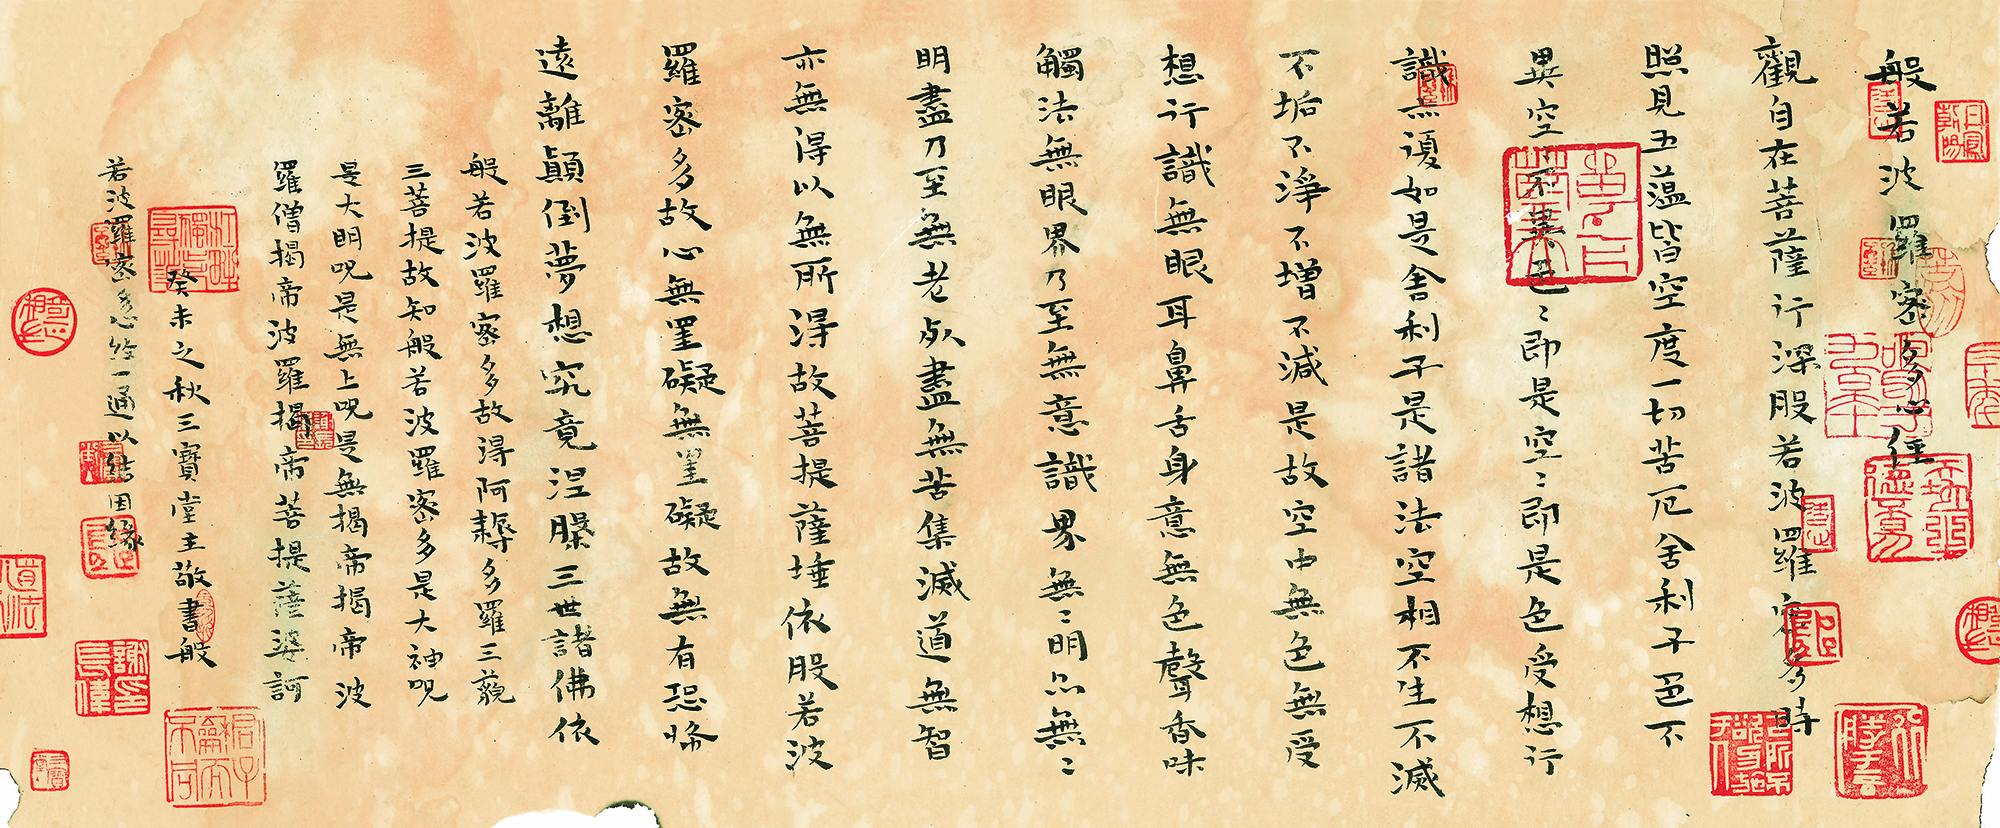 般若波羅密多心經
觀自在菩薩行深般若波羅密多時
照見五蘊皆空度一切苦厄舍利子色不
異空空不異色色〻即是空〻即是色受想行
識亦復如是舍利子是諸法空相不生不滅
不垢不淨不增不減是故空中無色無受
想行識無眼耳鼻舌身意無色聲香味
觸法無眼界乃至無意識界無〻明亦無〻
明盡乃至無老死盡無苦集滅道無智
亦無得以無所得故菩提薩埵依般若波
羅密多故心無罣礙無罣礙故無有恐怖
遠離顛倒夢想究竟涅槃三世諸佛依
般若波羅密多故得阿耨多羅三藐
三菩提故知般若波羅密多是大神呪
是大明呪是無上呪是無揭帝揭帝波
羅僧揭帝波羅揭帝菩提薩婆訶
癸未之秋三寶堂主敬書般
若波羅密多心經一通以結因緣